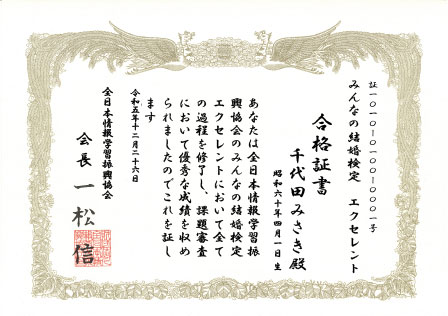 証一〇一〇-一〇〇一-〇〇〇一号
みんなの結婚検定　エクセレント
合格証書
千代田みさき殿
昭和六十年四月一日生
あなたは全日本情報学習振
興協会のみんなの結婚検定
エクセレントにおいて全て
の過程を修了し、課題審査
において優秀な成績を収め
られましたのでこれを証し
ます
令和五年十二月二十六日
全日本情報学習振興協会
会長　一松　信